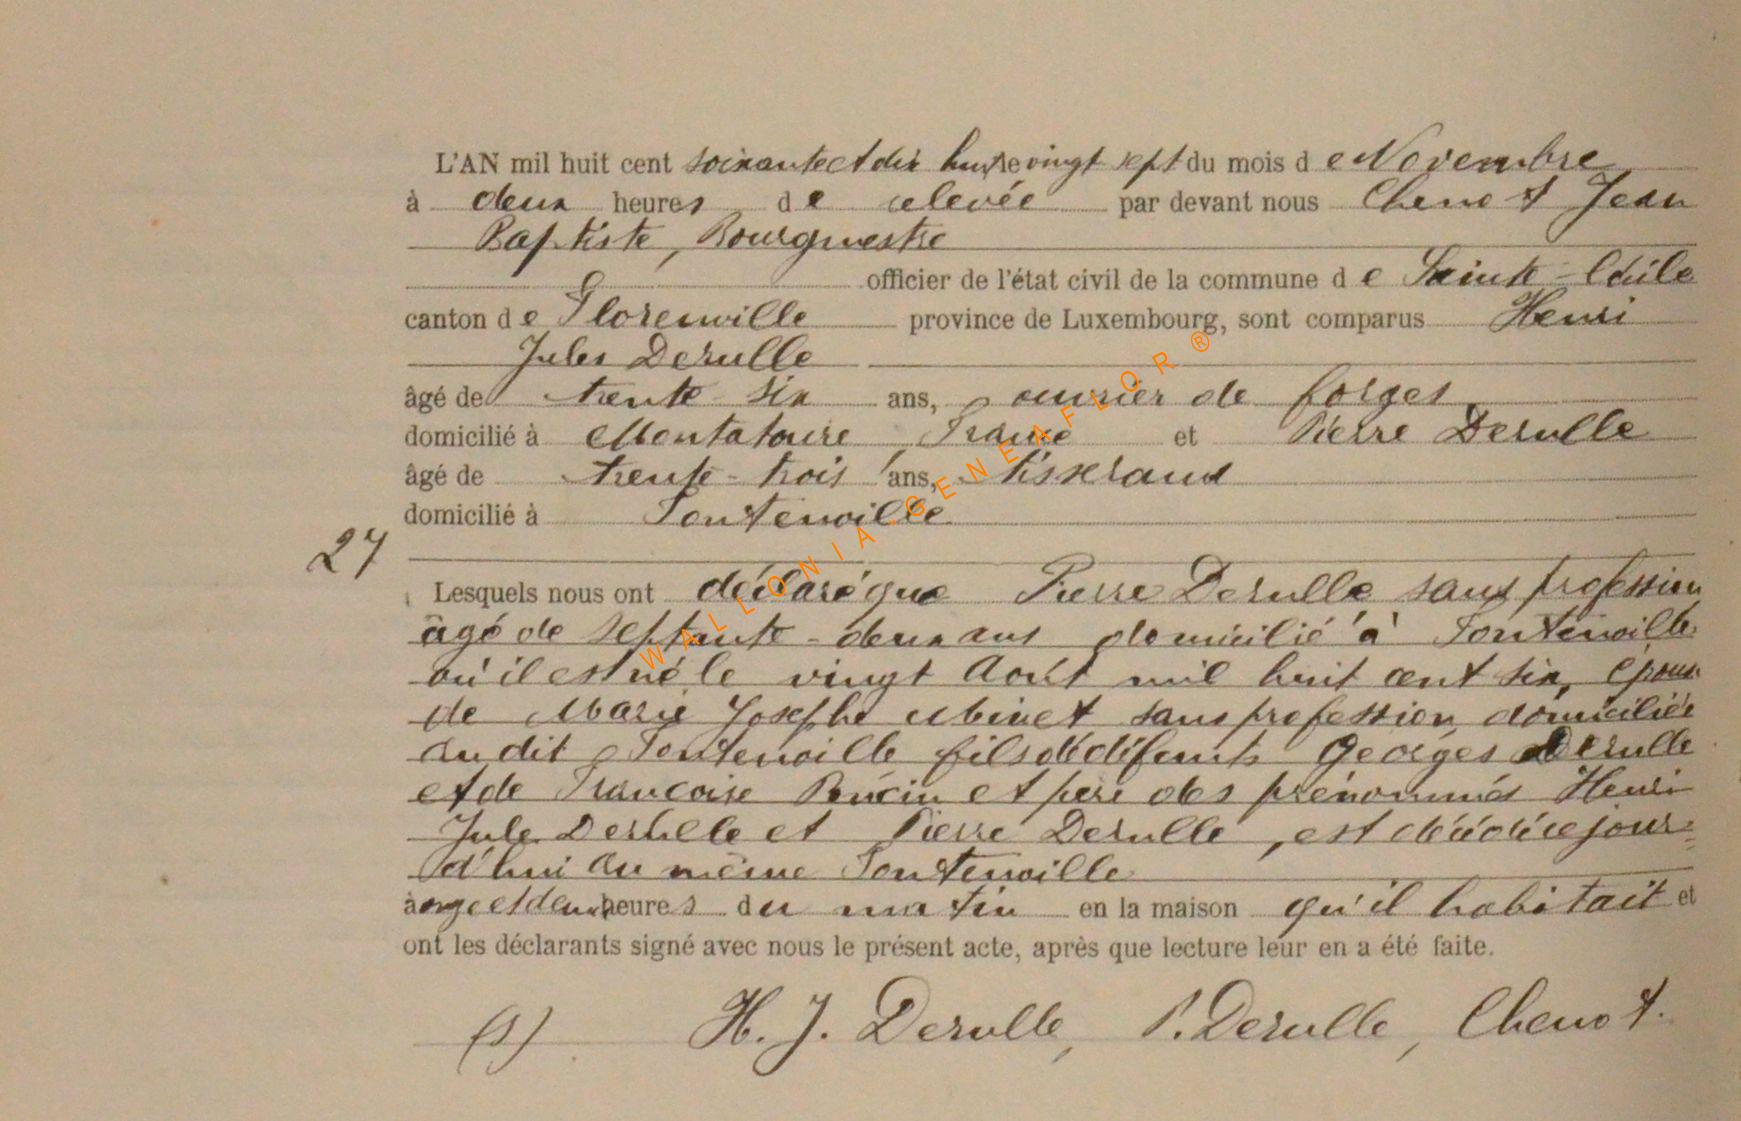 L'AN mil huit cent soixante et dix huit le vingt sept du mois de Novembre
à deux heures de relevée par devant nous Chenot Jean
Baptiste, Bourgmestre
officier de l'état civil de la commune de Sainte-Cécile
canton de Florenville province de Luxembourg, sont comparus Henri
Jules Derulle
âgé de trente six ans, ouvrier de forges
domicilié à Montataire, France et Pierre Derulle
âgé de trente-trois ans, tisserand
domicilié à Fontenoille
27
Lesquels nous ont déclaré que Pierre Derulle sans profession
âgé de septante-deux ans domicilié à Fontenoille
où il est né le vingt Août mil huit cent six, époux
de Marie Josephe Minet sans profession domiciliée
au dit Fontenoille fils de défunts Georges Derulle
et de Francoise et père des prénommés Henri
Jule Derulle et Pierre Derulle, est décédé ce jour-
d'hui au même Fontenoille
à onze et demi heures du matin en la maison qu'il habitait et
ont les déclarants signé avec nous le présent acte, après que lecture leur en a été faite.
(s) H. J. Derulle, P. Derulle, Chenot.
WALLONIA-GENEAFLOR®